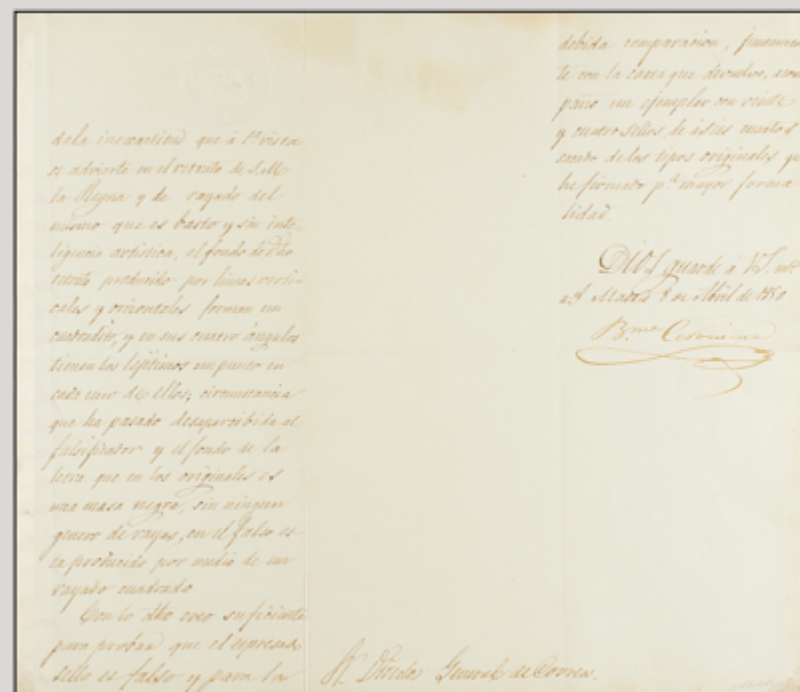 dela inexactitud que á 1ª vista
se advierte en el retrato de S.M.
la Reyna y de rayado del
mismo que es basto y sin inte-
ligencia artistica, el fondo de dho
retrato producido por lineas verti-
cales y orizontales forman un
cuadradito, y en sus cuatro ángulos
tienen los legitimos un punto en
cada uno de ellos; circunstancia
que ha pasado desapercibida al
falsificador y el fondo de la
letra que en los originales es
una masa negra, sin ningun
genero de rayas, en el falso es-
ta producido por medio de un
rayado cuadrado.
Con lo dho creo suficiente
para probar que el espresado
sello es falso y para la
debida comparacion, juntamen-
te con la carta que devuelvo, acom-
paño un ejemplar con veinte
y cuatro sellos de á seis cuartos
sacado de los tipos originales que
he firmado pª mayor forma-
lidad.
DIOS guarde á V.S. mˢ
aˢ Madrid 8 de Abril de 1850.
Bmé Coromina
Sr. Director General de Correos.